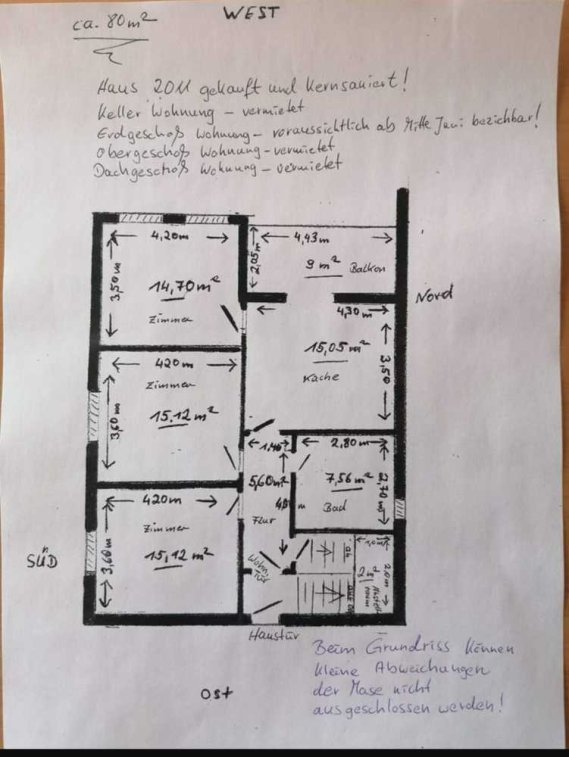 WEST
ca. 80 m²
Haus 2011 gekauft und Kernsaniert!
Keller Wohnung - vermietet
Erdgeschoß Wohnung - voraussichtlich ab Mitte Juni beziehbar!
Obergeschoß Wohnung - vermietet
Dachgeschoß Wohnung - vermietet
4,20m
4,43m
2,05m
9 m²
Balkon
3,50m
14,70 m²
Zimmer
Nord
4,30m
15,05 m²
3,50
Küche
420m
Zimmer
3,60m
15,12 m²
1,40
2,80m
5,60m²
7,56 m²
2,70m
Bad
Flur
420m
Zimmer
3,60m
15,12 m²
SÜD
Wohn.
Tür
1,0m
2,0m
Haustür
Ost
Beim Grundriss können
kleine Abweichungen
der Mase nicht
ausgeschlossen werden!